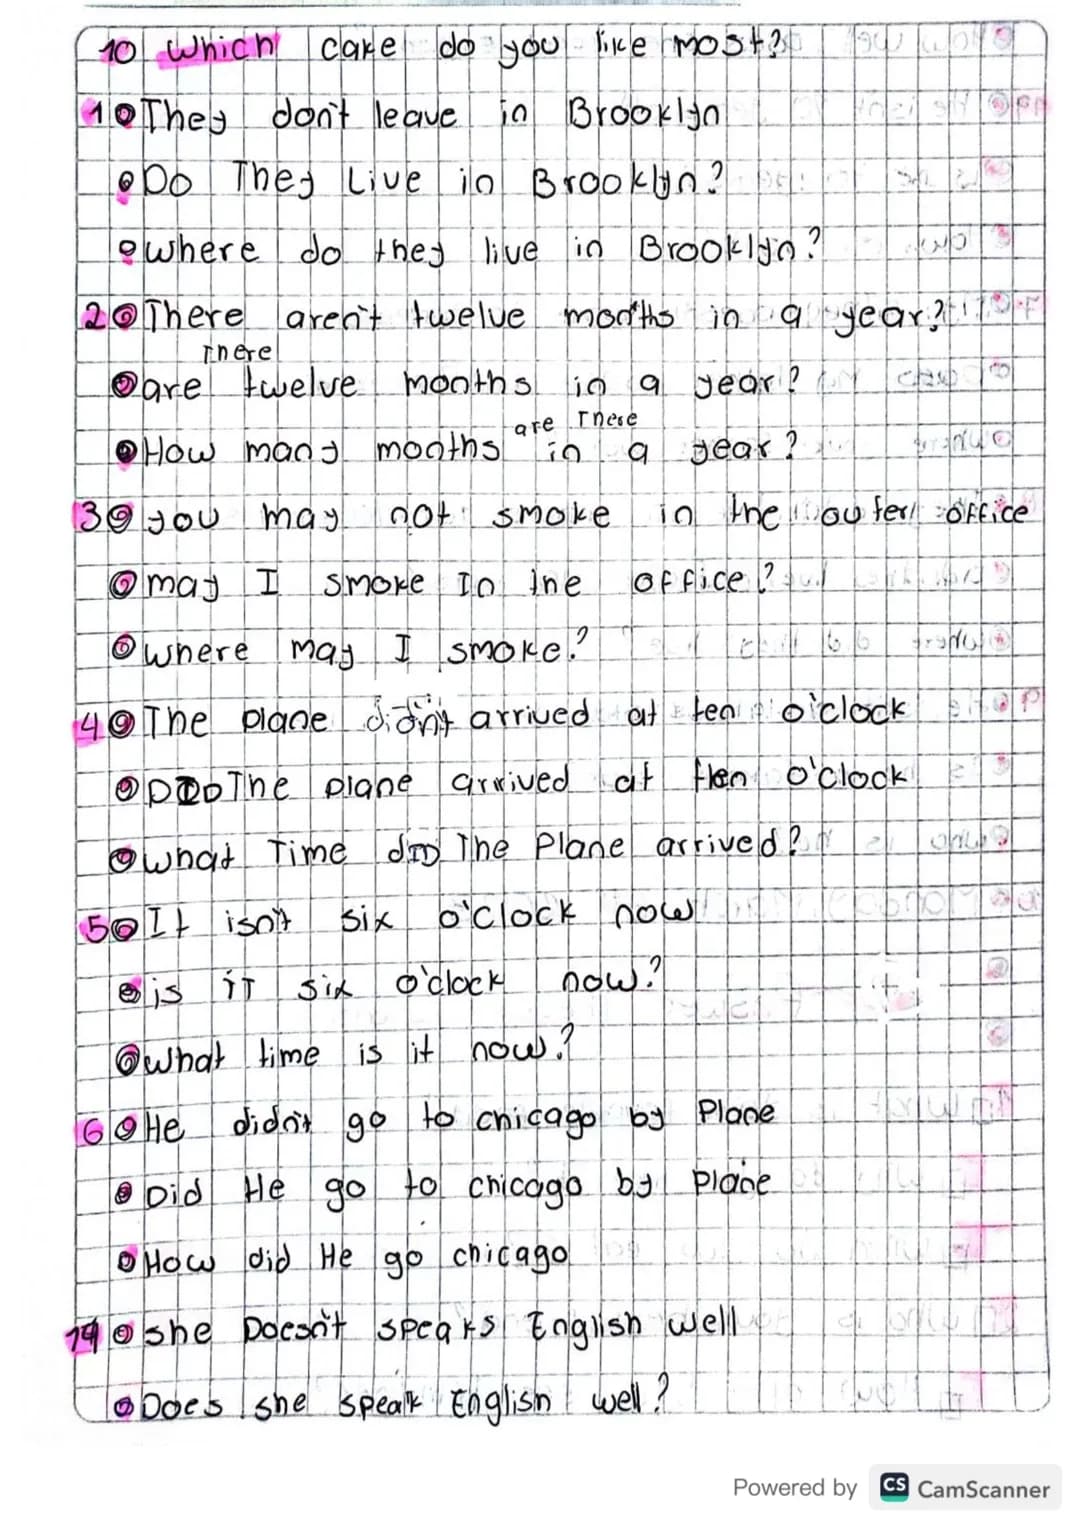 10 Which cake do you like most?
1 They don't leave in Brooklyn
Do They Live in Brooklyn?
where do they live in Brooklyn?
2 There aren't twelve months in a year?
There
are twelve months in a year?
are There
How many months in a year?
3 you may not smoke in the outer office
may I smoke In the office?
where may I smoke?
4 The plane didn't arrived at ten o'clock
DID The plane arrived at ten o'clock
what Time dID The Plane arrived?
5 It isn't six o'clock now
is iT six o'clock now?
what time is it now?
6 He didn't go to chicago by Plane
Did He go to chicago by Plane
How did He go chicago
14 she Doesn't speaks English well
Does she speak English well?
Powered by CS CamScanner